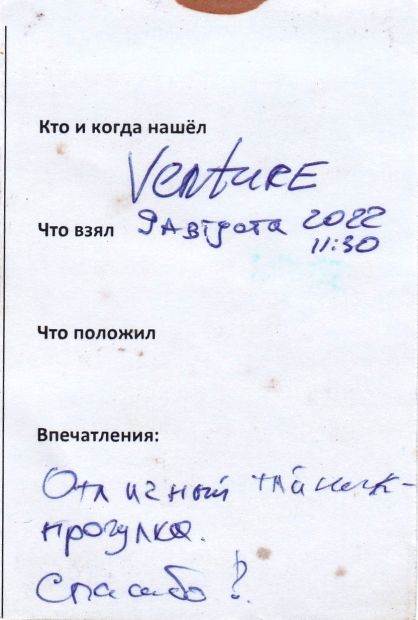 Кто и когда нашёл
VentuRE
Что взял 9 Августа 2022
11:30
Что положил
Впечатления:
Отличный тайник-
прогулка.
Спасибо!